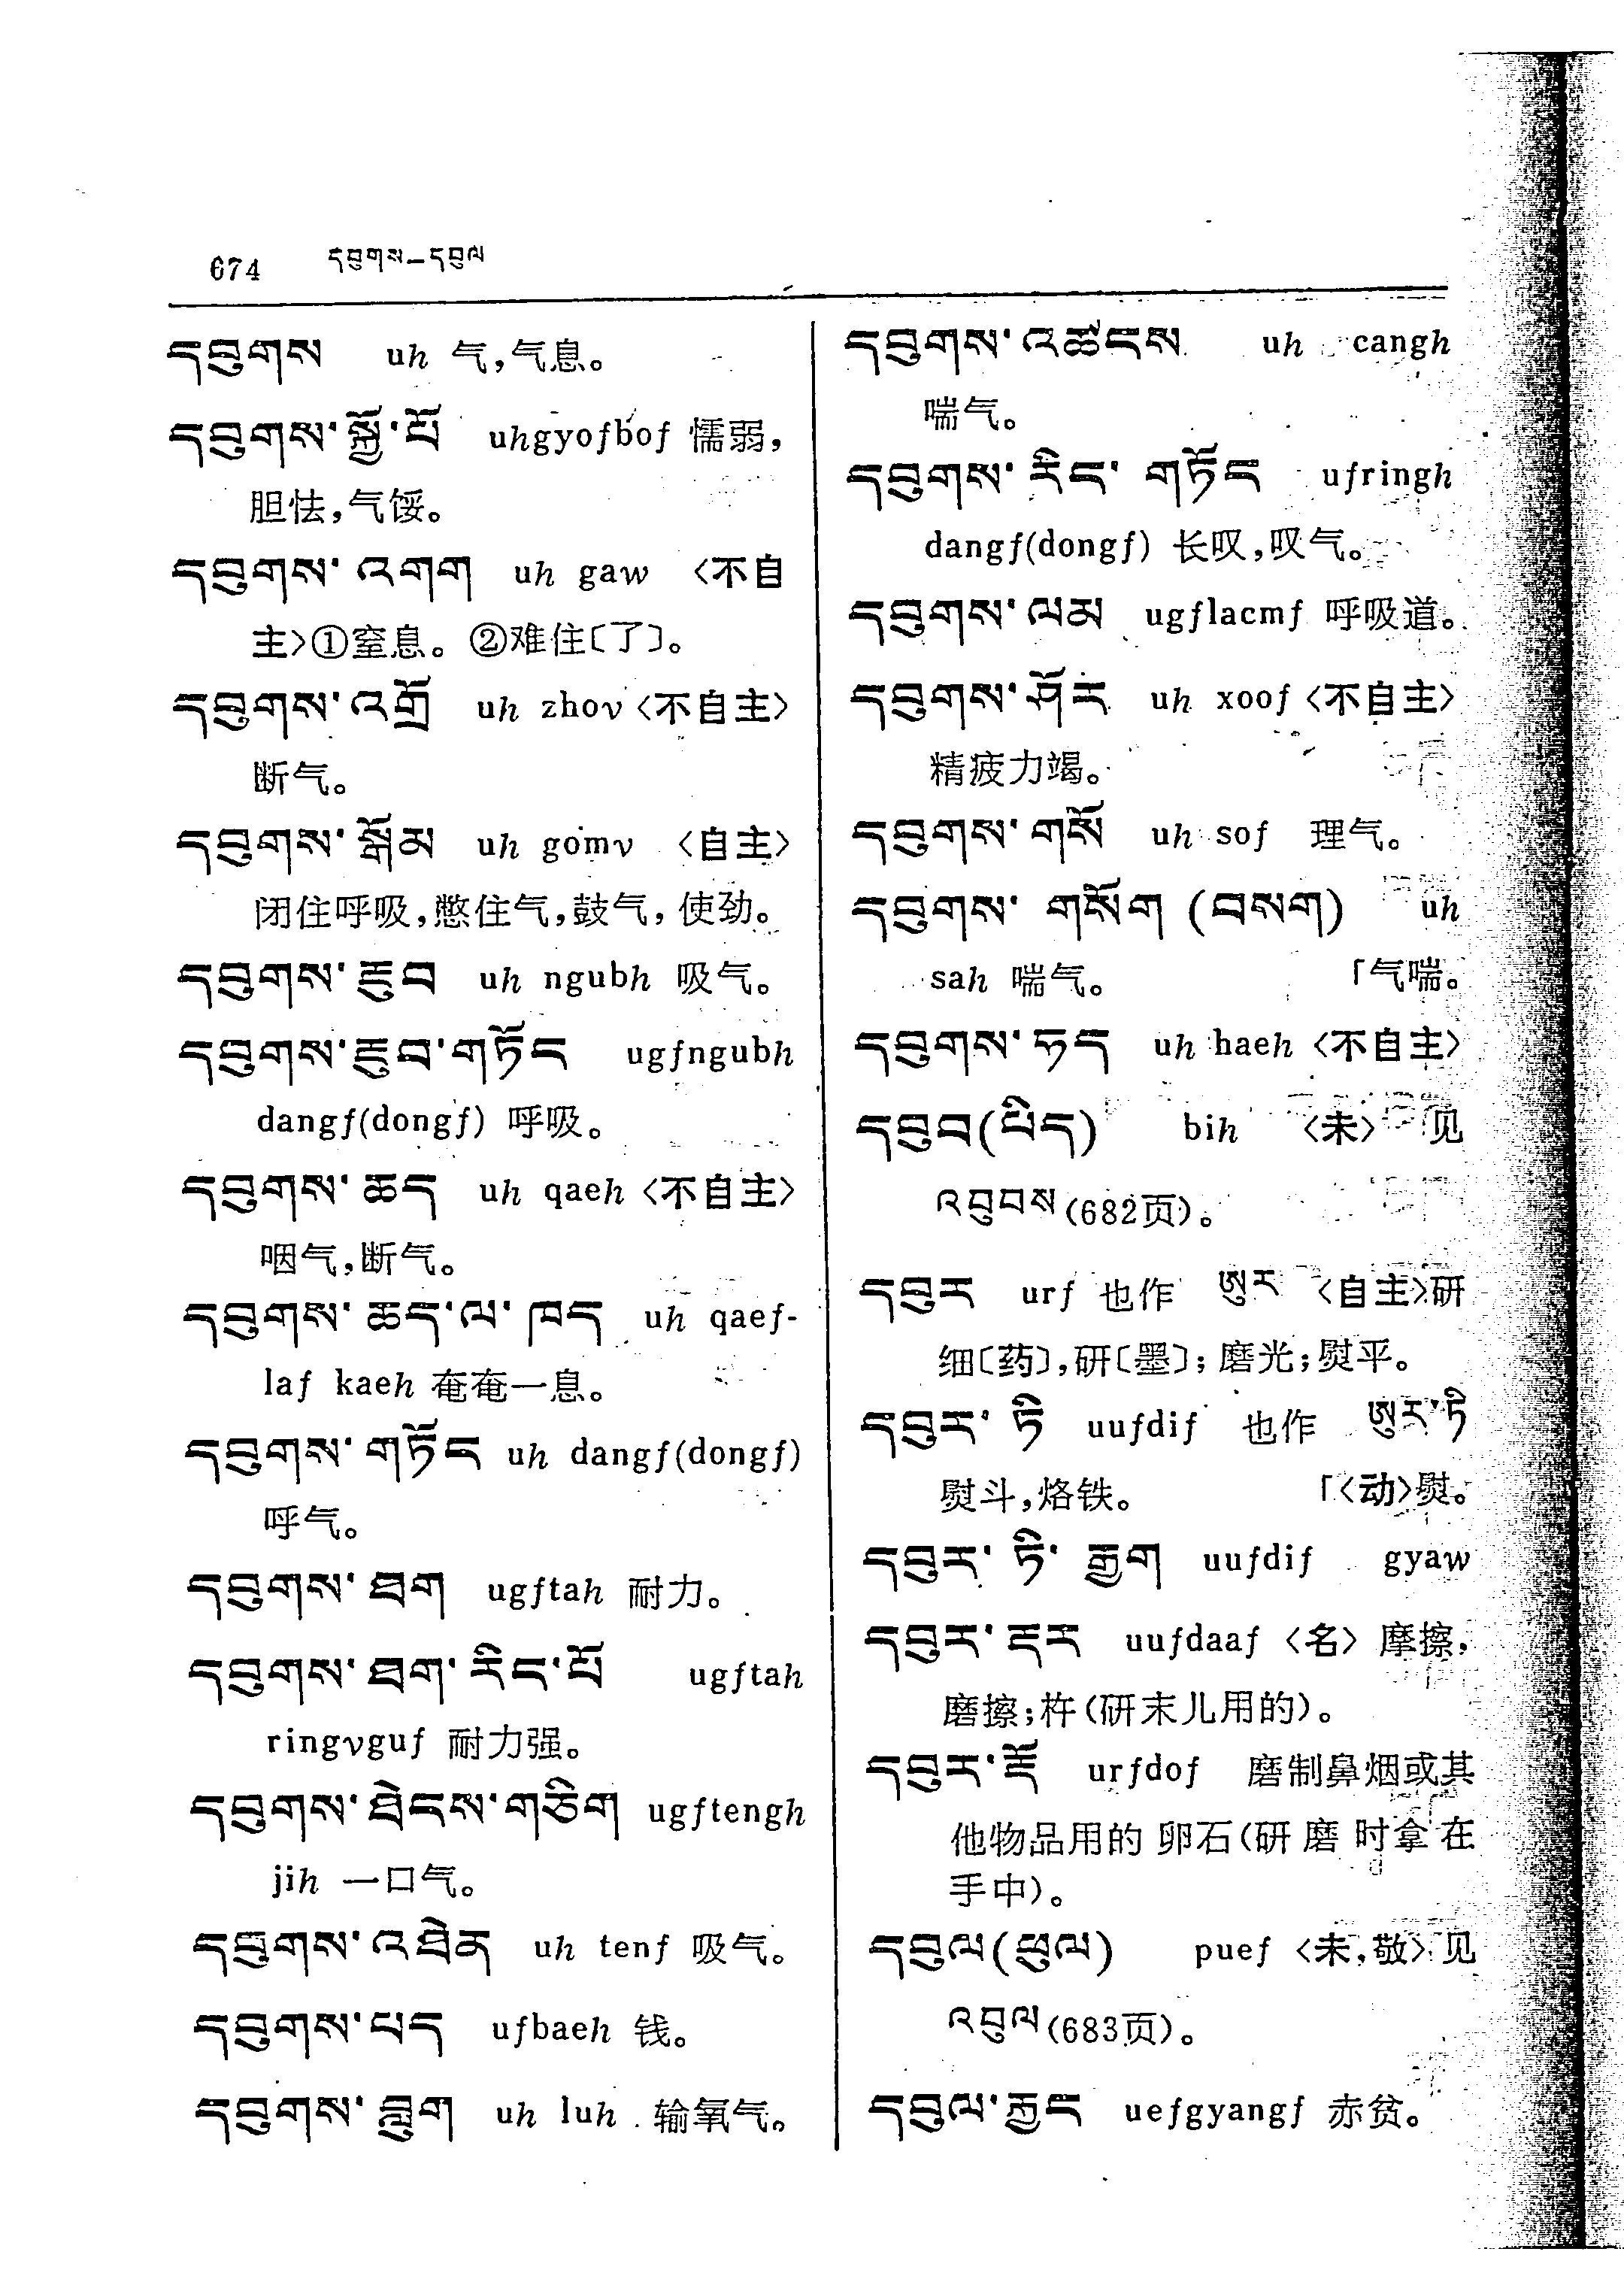 674 དབུགས—དབུལ
དབུགས uh 气,气息。
དབུགས་སྐྱོ་པོ uhgyofbof 懦弱,
胆怯,气馁。
དབུགས་འགག uh gaw 〈不自
主〉①窒息。②难住〔了〕。
དབུགས་འགྲོ uh zhov〈不自主〉
断气。
དབུགས་སྒོམ uh gomv 〈自主〉
闭住呼吸,憋住气,鼓气,使劲。
དབུགས་རྔུབ uh ngubh 吸气。
དབུགས་རྔུབ་གཏོང ugfngubh
dangf(dongf) 呼吸。
དབུགས་ཆད uh qaeh〈不自主〉
咽气,断气。
དབུགས་ཆད་ལ་ཁད uh qaef-
laf kaeh 奄奄一息。
དབུགས་གཏོང uh dangf(dongf)
呼气。
དབུགས་ཐག ugftah 耐力。
དབུགས་ཐག་རིང་པོ ugftah
ringvguf 耐力强。
དབུགས་ཐེངས་གཅིག ugftengh
jih 一口气。
དབུགས་འཐེན uh tenf 吸气。
དབུགས་པད ufbaeh 钱。
དབུགས་བླུག uh luh 输氧气。
དབུགས་འཚངས uh cangh
喘气。
དབུགས་རིང་གཏོང ufringh
dangf(dongf) 长叹,叹气。
དབུགས་ལམ ugflacmf 呼吸道。
དབུགས་ཤོར uh xoof〈不自主〉
精疲力竭。
དབུགས་གསོ uh sof 理气。
དབུགས་གསོག (བསག) uh
sah 喘气。 「气喘。
དབུགས་ཧད uh haeh〈不自主〉
དབུབ(ཕིད) bih 〈未〉 见
འབུབས(682页)。
དབུར urf 也作 ཨུར 〈自主〉研
细〔药〕,研〔墨〕;磨光;熨平。
དབུར་ཏི uufdif 也作 ཨུར་ཏི
熨斗,烙铁。 「〈动〉熨。
དབུར་ཏི་རྒྱག uufdif gyaw
དབུར་རྡར uufdaaf〈名〉摩擦,
磨擦;杵(研末儿用的)。
དབུར་རྡོ urfdof 磨制鼻烟或其
他物品用的卵石(研磨时拿在
手中)。
དབུལ(ཕུལ) puef〈未,敬〉见
འབུལ(683页)。
དབུལ་རྒྱང uefgyangf 赤贫。